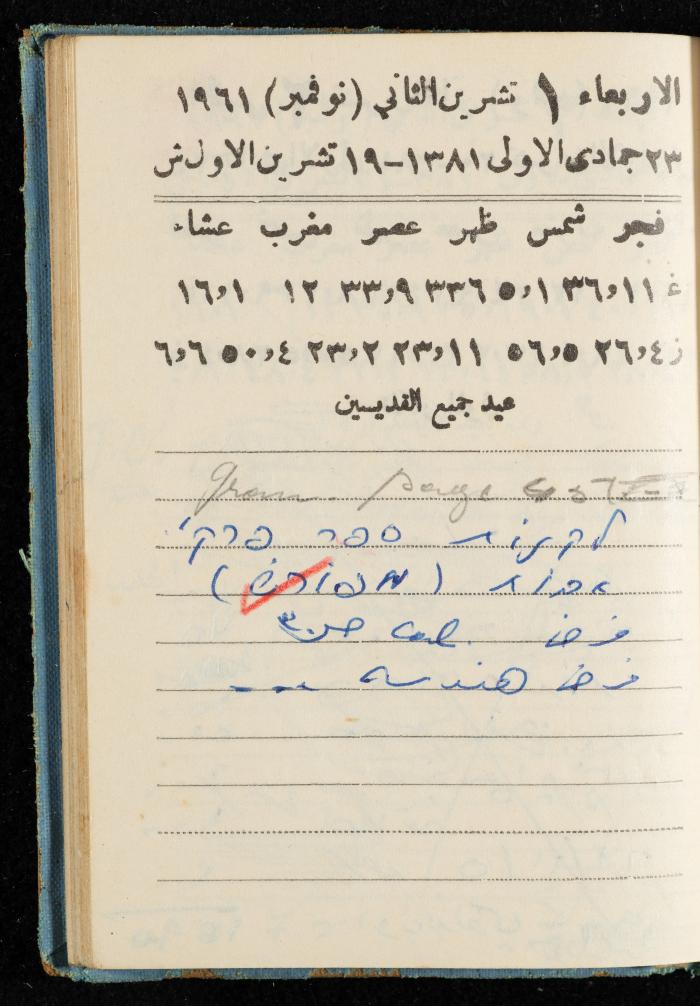 الاربعاء ١ تشرين الثاني (نوفمبر) ١٩٦١
٢٣ جمادى الاولى ١٣٨١-١٩ تشرين الاول ش
فجر شمس ظهر عصر مغرب عشاء
غ ١١و٣٦ ١و٥ ٦و٣٣ ٩و٣٣ ١٢ ١و١٦
ز ٤و٢٦ ٥و٥٦ ١١و٢٣ ٢و٢٣ ٤و٥٠ ٦و٦
عيد جميع القديسين
Gram. page
לקנות ספר פרקי
אבות (מפורש)
فرض حساب ص٣٠
فرض هندسه